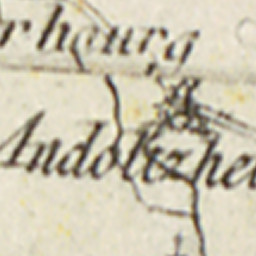 rhourg
Andoltzhe